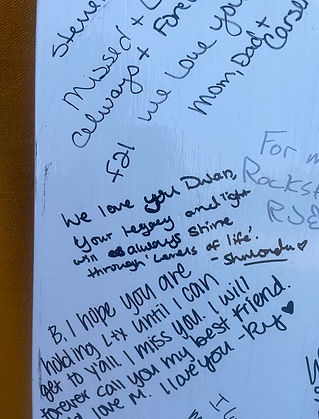 Steve
Missed +
always + For
we love you
Mom, Dad +
Carse
For m
Rocks
RJE
We love you Dwan,
Your legacy and light
will always shine
through 'Levels of life'.
B, I hope you are
holding Lty until I can
get to y'all. I miss you. I will
forever call you my best friend.
love M. I love you - Ry
H